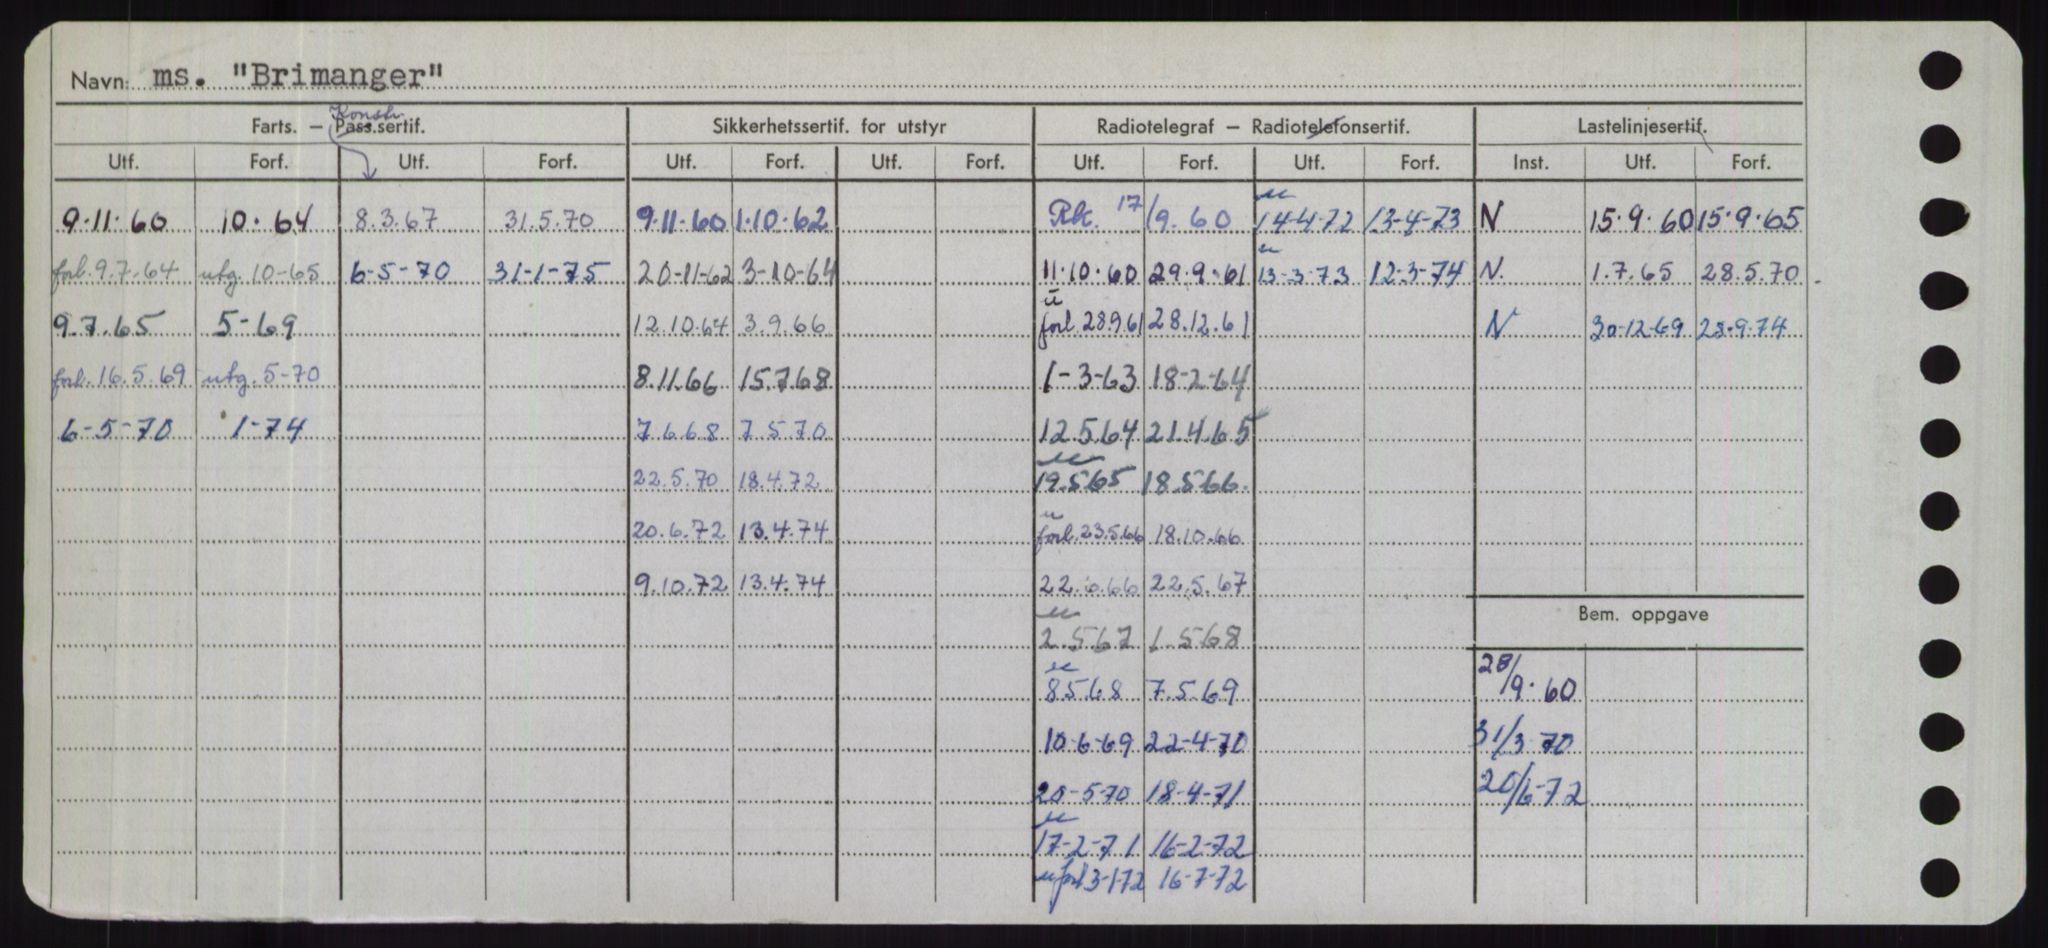 Navn: ms. "Brimanger"
Konstr.
Farts. – Pass.sertif. Sikkerhetssertif. for utstyr Radiotelegraf – Radiotelefonsertif. Lastelinjesertif.
Utf. Forf. Utf. Forf. Utf. Forf. Utf. Forf. Utf. Forf. Utf. Forf. Inst. Utf. Forf.
9.11.60 10.64 8.3.67 31.5.70 9.11.60 1.10.62 Rk. 17/9.60 u 14-4-72 13-4-73 N 15.9.60 15.9.65
forl. 9.7.64 utg. 10-65 6-5-70 31-1-75 20-11-62 3-10-64 11.10.60 29.9.61 u 13-3-73 12-3-74 N. 1.7.65 28.5.70
9.7.65 5-69 12.10.64 3.9.66 u forl. 28.9.61 28.12.61 N 30-12-69 28.9.74
forl. 16.5.69 utg. 5-70 8.11.66 15.7.68 1-3-63 18-2-64
6-5-70 1-74 7.6.68 7.5.70 12.5.64 21.4.65
22.5.70 18.4.72 u 19.5.65 18.5.66.
20.6.72 13.4.74 u forl. 23.5.66 18.10.66
9.10.72 13.4.74 22.6.66 22.5.67
Bem. oppgave
u 2.5.67 1.5.68
u 8.5.68 7.5.69 28/9.60
10-6-69 22-4-70 31/3-70
20-5-70 18-4-71 20/6-72
u 17-2-71 16-2-72
u forl 3-1-72 16-7-72